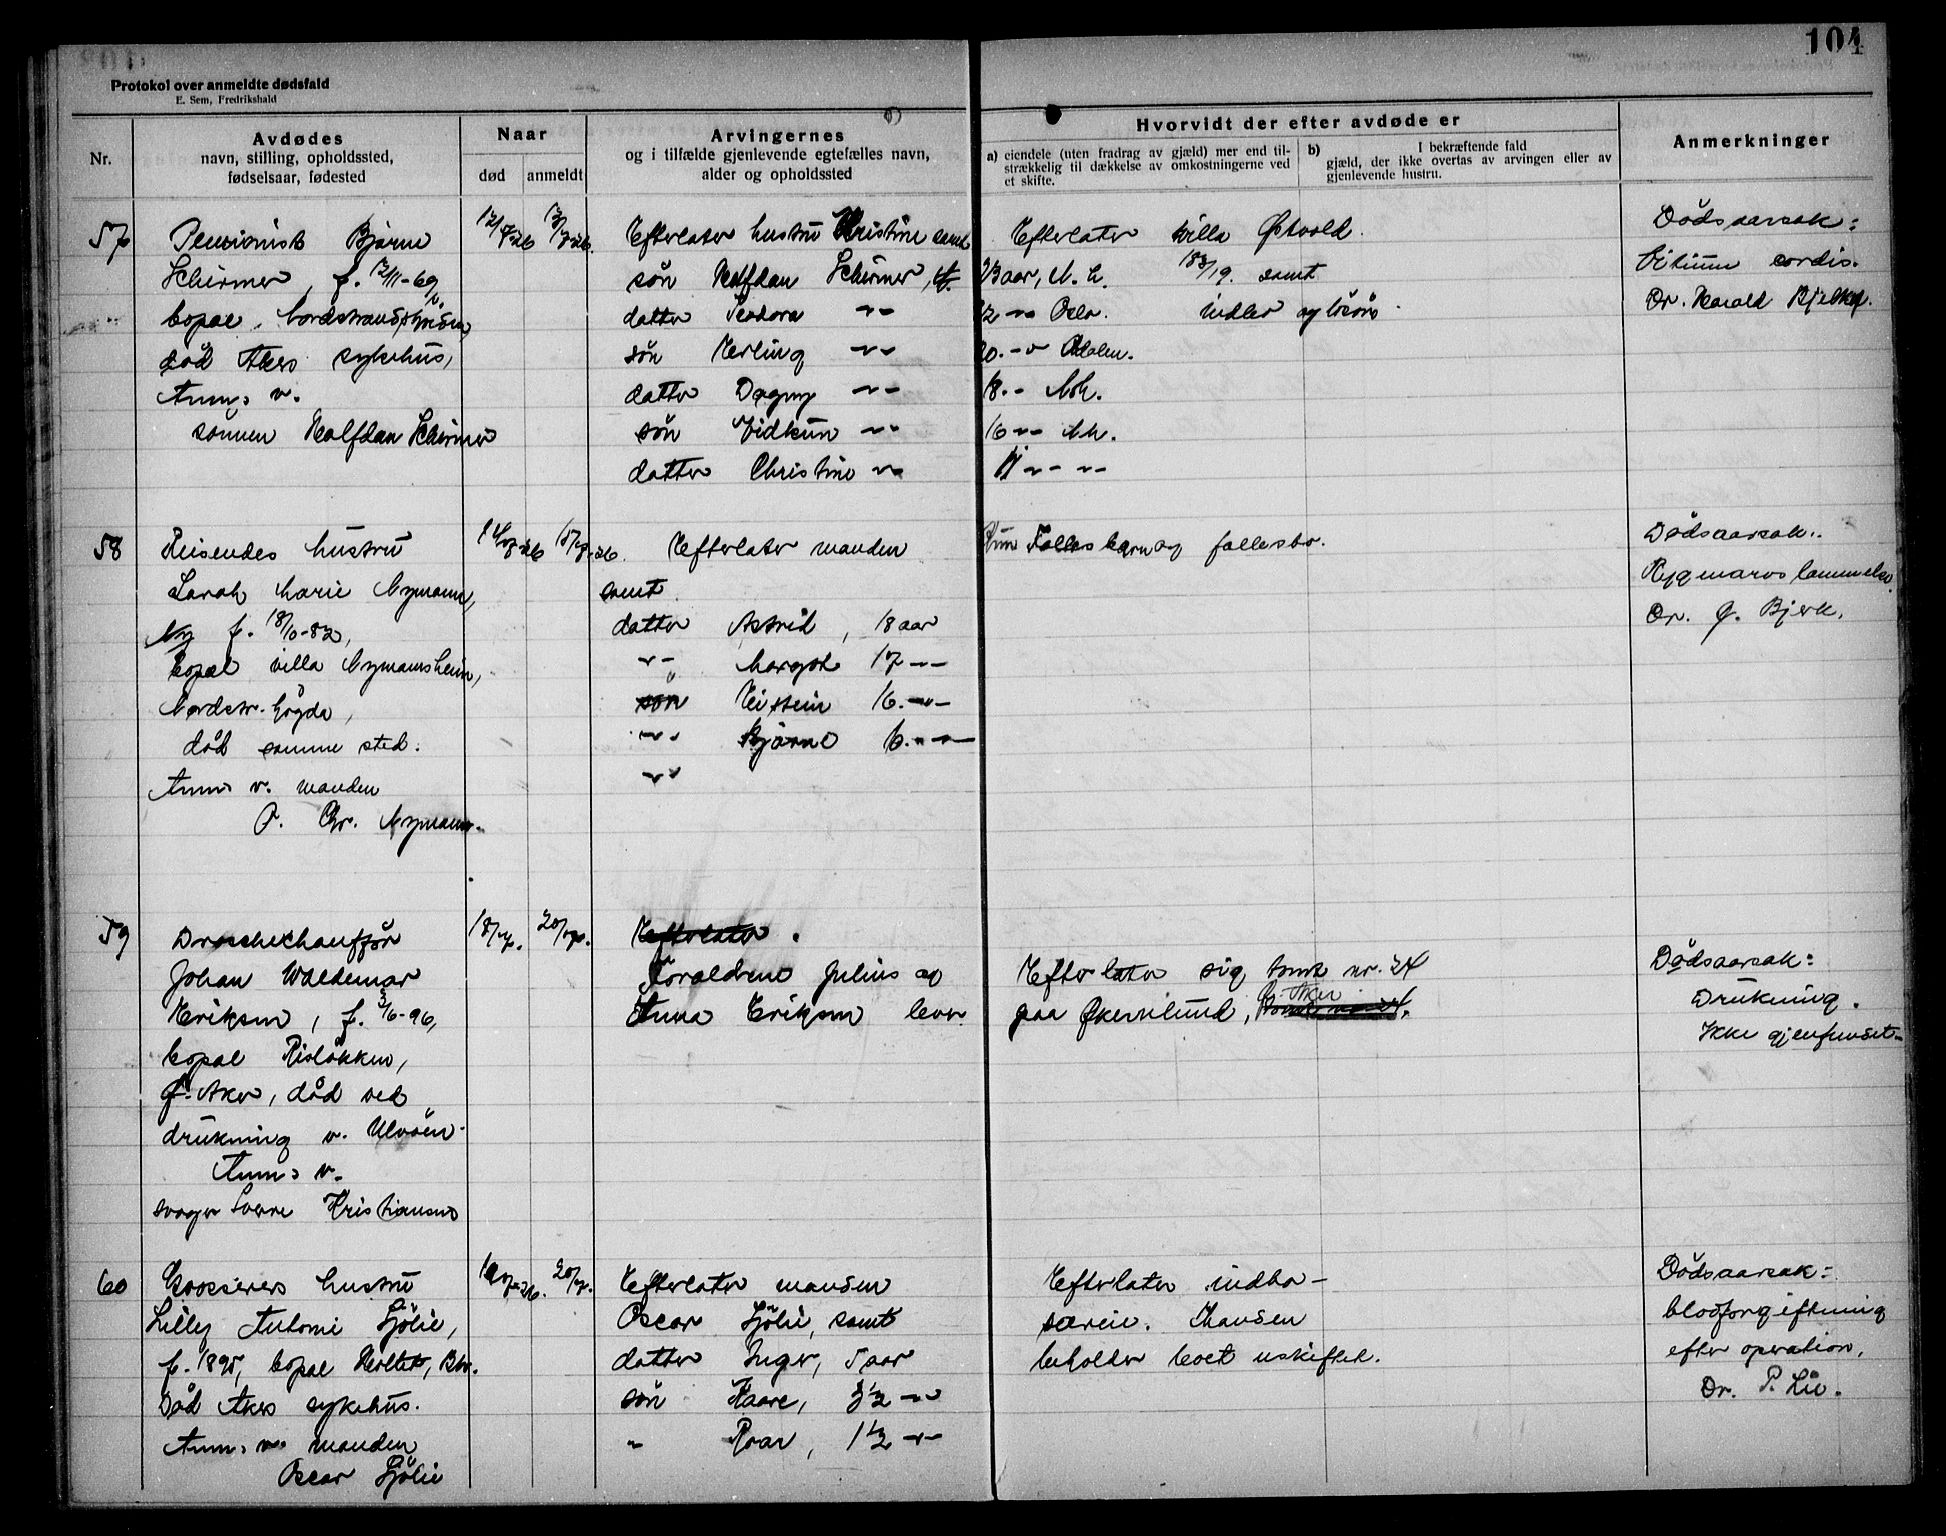 104
Protokol over anmeldte dødsfald
E. Sem, Fredrikshald
Nr.
Avdødes
navn, stilling, opholdssted,
fødselsaar, fødested
Naar
død
anmeldt
Arvingernes
og i tilfælde gjenlevende egtefælles navn,
alder og opholdssted
Hvorvidt der efter avdøde er
a) eiendele (uten fradrag av gjæld) mer end til-
strækkelig til dækkelse av omkostningerne ved
et skifte.
b) I bekræftende fald
gjæld, der ikke overtas av arvingen eller av
gjenlevende hustru.
Anmerkninger
57
Pensionist Bjarne
Schirmer, f. 12/11-69,
bopæl Nordstrandshøiden,
død Akers sykehus,
Anm. v.
sønnen Halfdan Schirmer
12/7-26 13/7-26
Efterlater hustru Kristine samt
søn Halfdan Schirmer, 23 aar, N. h.
datter Teodora -"- 22 -"- Oslo.
søn Erling -"- 20. -"- Odalen.
datter Dagny -"- 18. -
søn Vidkun -"- 16 -"-
datter Christine -"- 11 -"- -"-
Efterlater villa Østvold
183/19. samt
indbo og løsøre
Dødsaarsak:
Vitium cordis.
Dr. Harald
58
Reisendes hustru
Sarah Marie Nymann,
Ny f. 18/10-82,
bopæl villa Nymannsheim,
Nordstr. høgda,
død samme sted.
Anm. v. manden
O. Chr. Nymann.
14/7-26 15/7-26.
Efterlater manden
samt
datter Astrid, 18 aar
-"- Margot 17 -"-
søn Eistein 16. -"-
-"- Bjarne 6. -"-
-"-
Kun Fællesbarn og fællesbo.
Dødsaarsak:
Rygmarvslammelse.
Dr. O. Bjerk.
59
Droschechauffør
Johan Waldemar
Eriksen, f. 3/6-96,
bopæl Risløkken,
Ø. Aker, død ved
drukning v. Ulvøen.
Anm. v.
svoger Sverre Kristiansen
18/7. 20/7.
Efterlater.
Forældrene Julius og
Anna Eriksen lever
Efterlater sig tomt nr. 24
paa Økernlund, Ø. Aker
Dødsaarsak:
Drukning.
Ikke gjenfundet.
60
hustru
Lilly Antonie Sjølie,
f. 1895, bopæl Holtet, Bkl.
Død Akers sykehus.
Anm. v. manden
Oscar Sjølie
20/7.
Efterlater manden
Oscar Sjølie, samt
datter Inger, 5 aar
søn Kaare, 3 1/2 -"-
" Roar, 1 1/2 -"-
Efterlater indbo-
særeie. Manden
beholder boet uskiftet.
Dødsaarsak:
blodforgiftning
efter operation,
Dr. P. Lie.